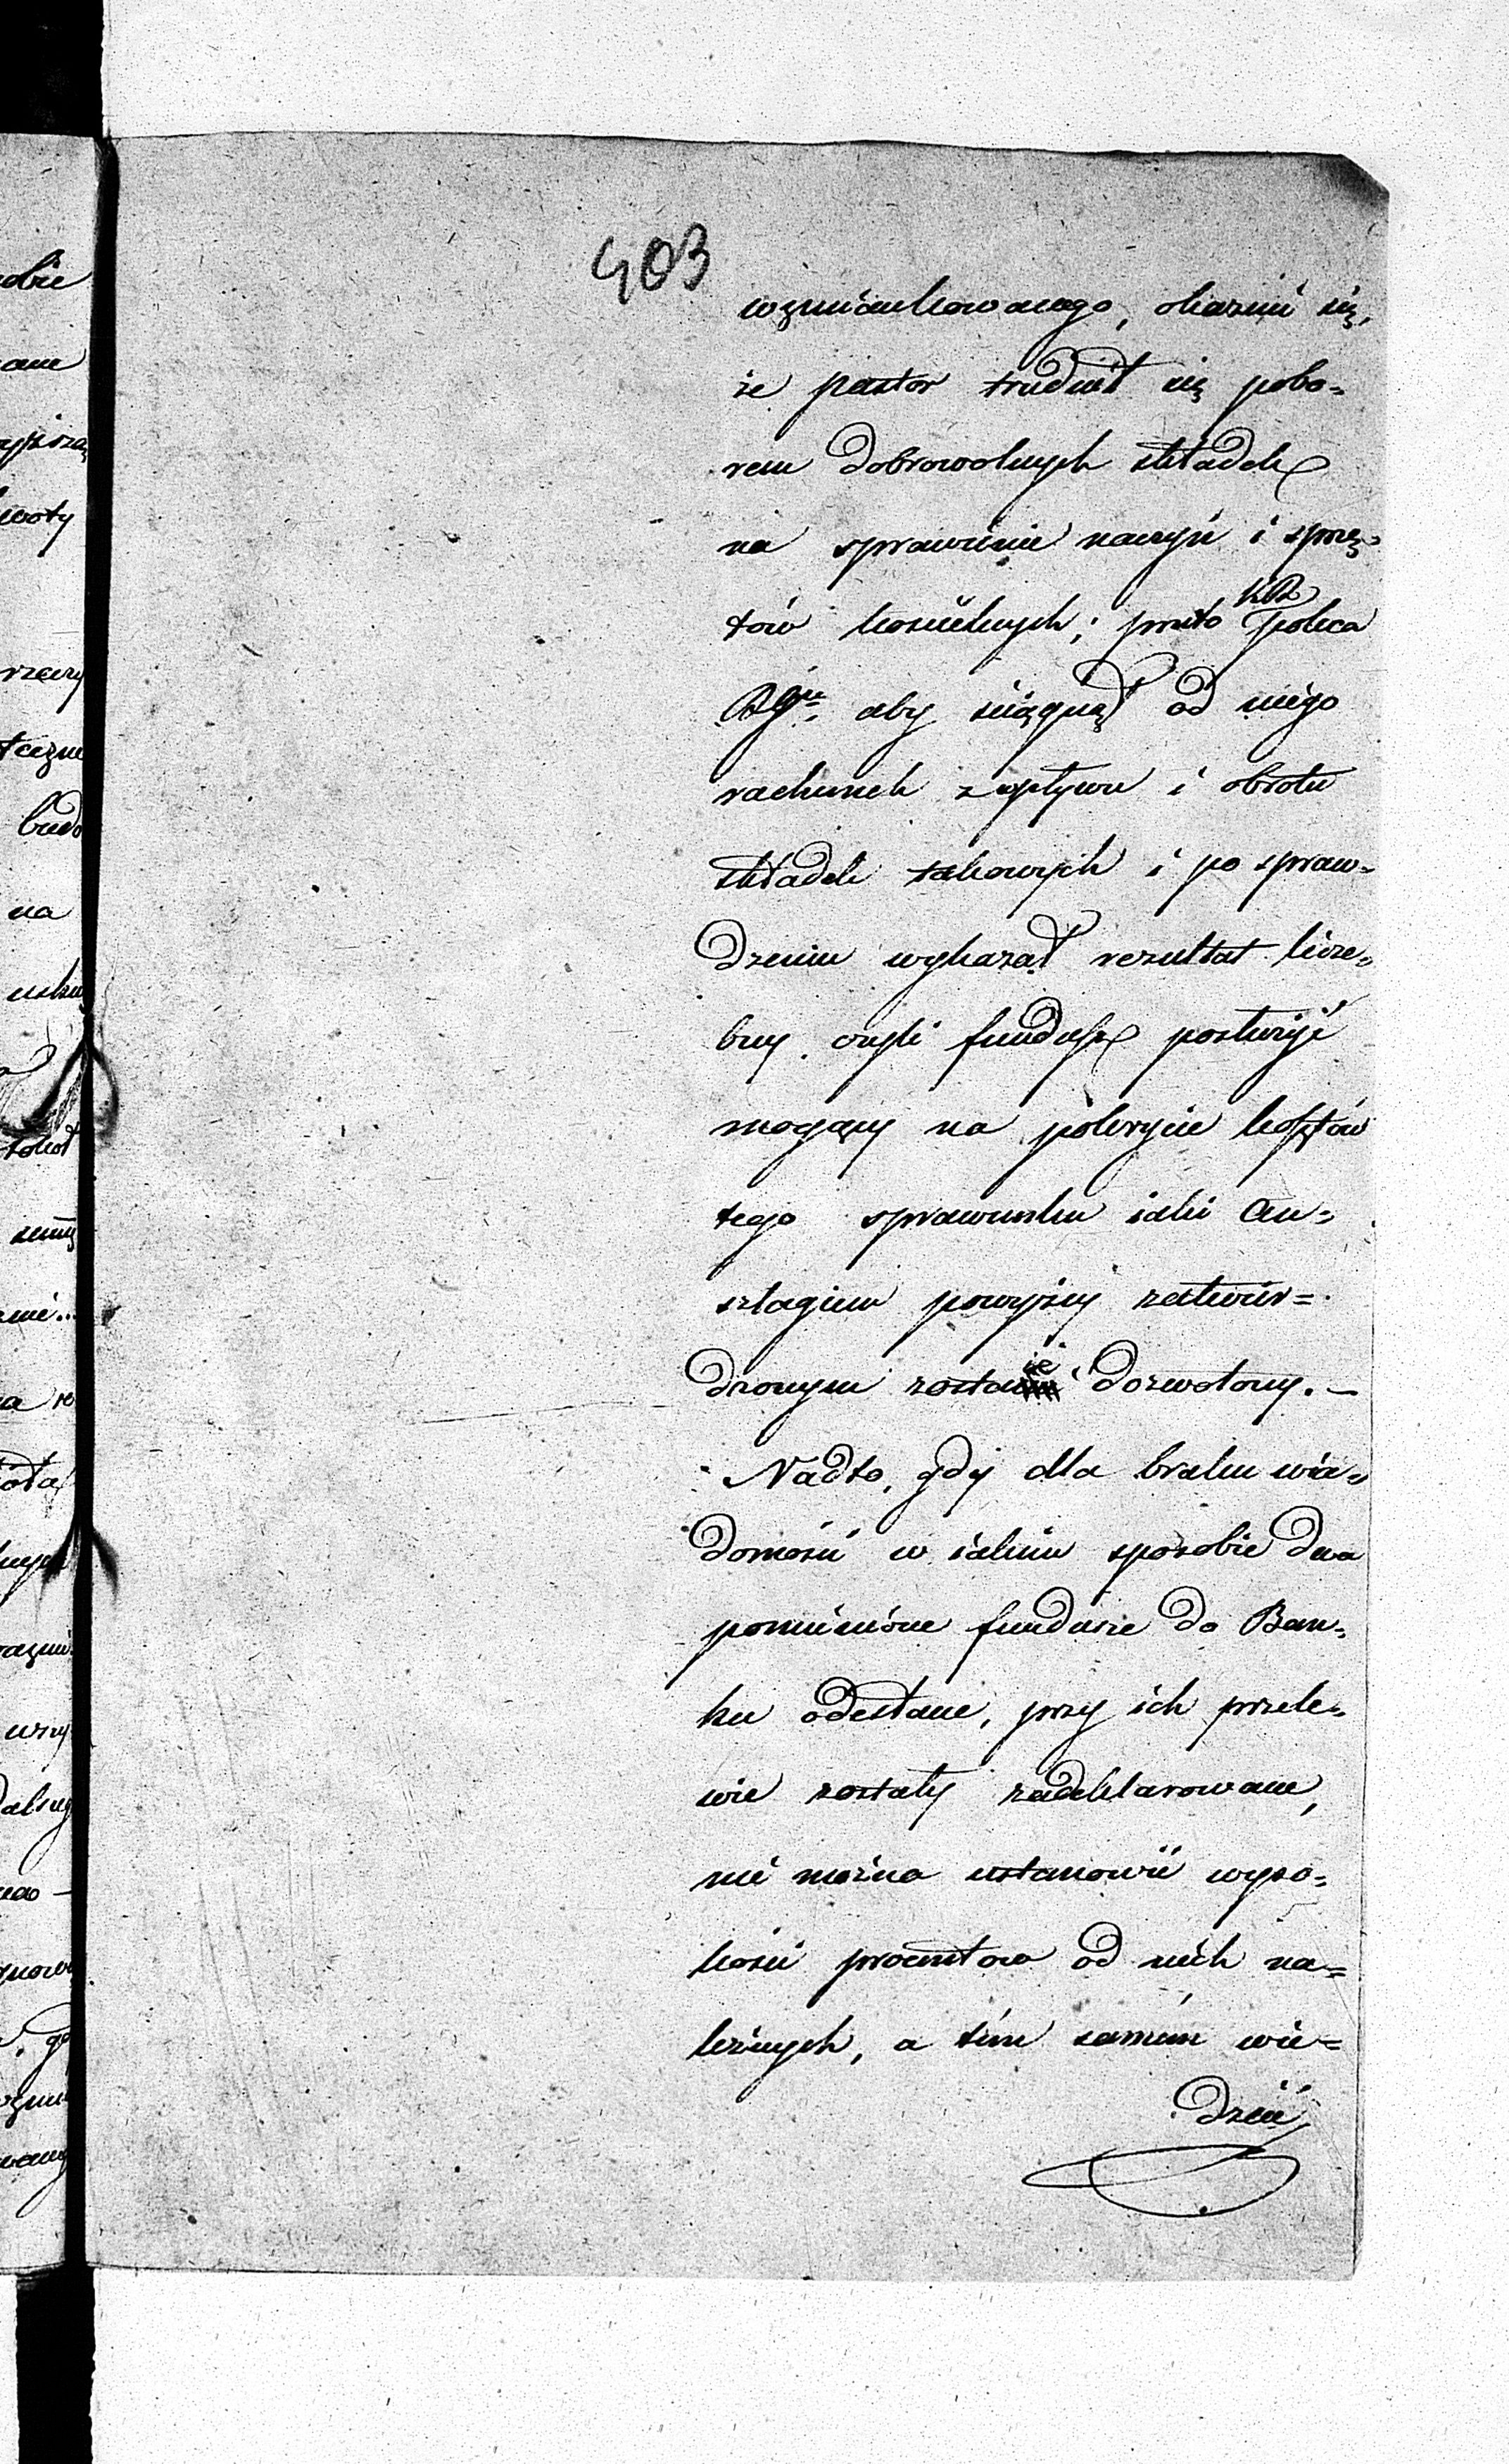 403
wzmiankowanego, okazuie się,
że pastor trudnił się pobo=
rem dobrowolnych składek
na sprawienie naczyń i sprzę=
tów kościelnych; przeto KR poleca
aby ściągnął od niego
rachunek z wpływu i obrotu
składek takowych i po spraw=
dzeniu wykazał rezultat licze=
bny czyli fundusz posłużyć
mogący na pokrycie kosztów
tego sprawunku iaki An=
szlagiem powyżey zatwier=
dzonym zostanie dozwolony. —
Nadto, gdy dla braku wia=
domości w iakim sposobie dwa
pomienione fundusze do Ban=
ku odesłane, przy ich przele=
wie zostały zadeklarowane,
nie można ustanowić wyso=
kości procentów od nich na=
leżnych, a tém samém wie=
dzieć